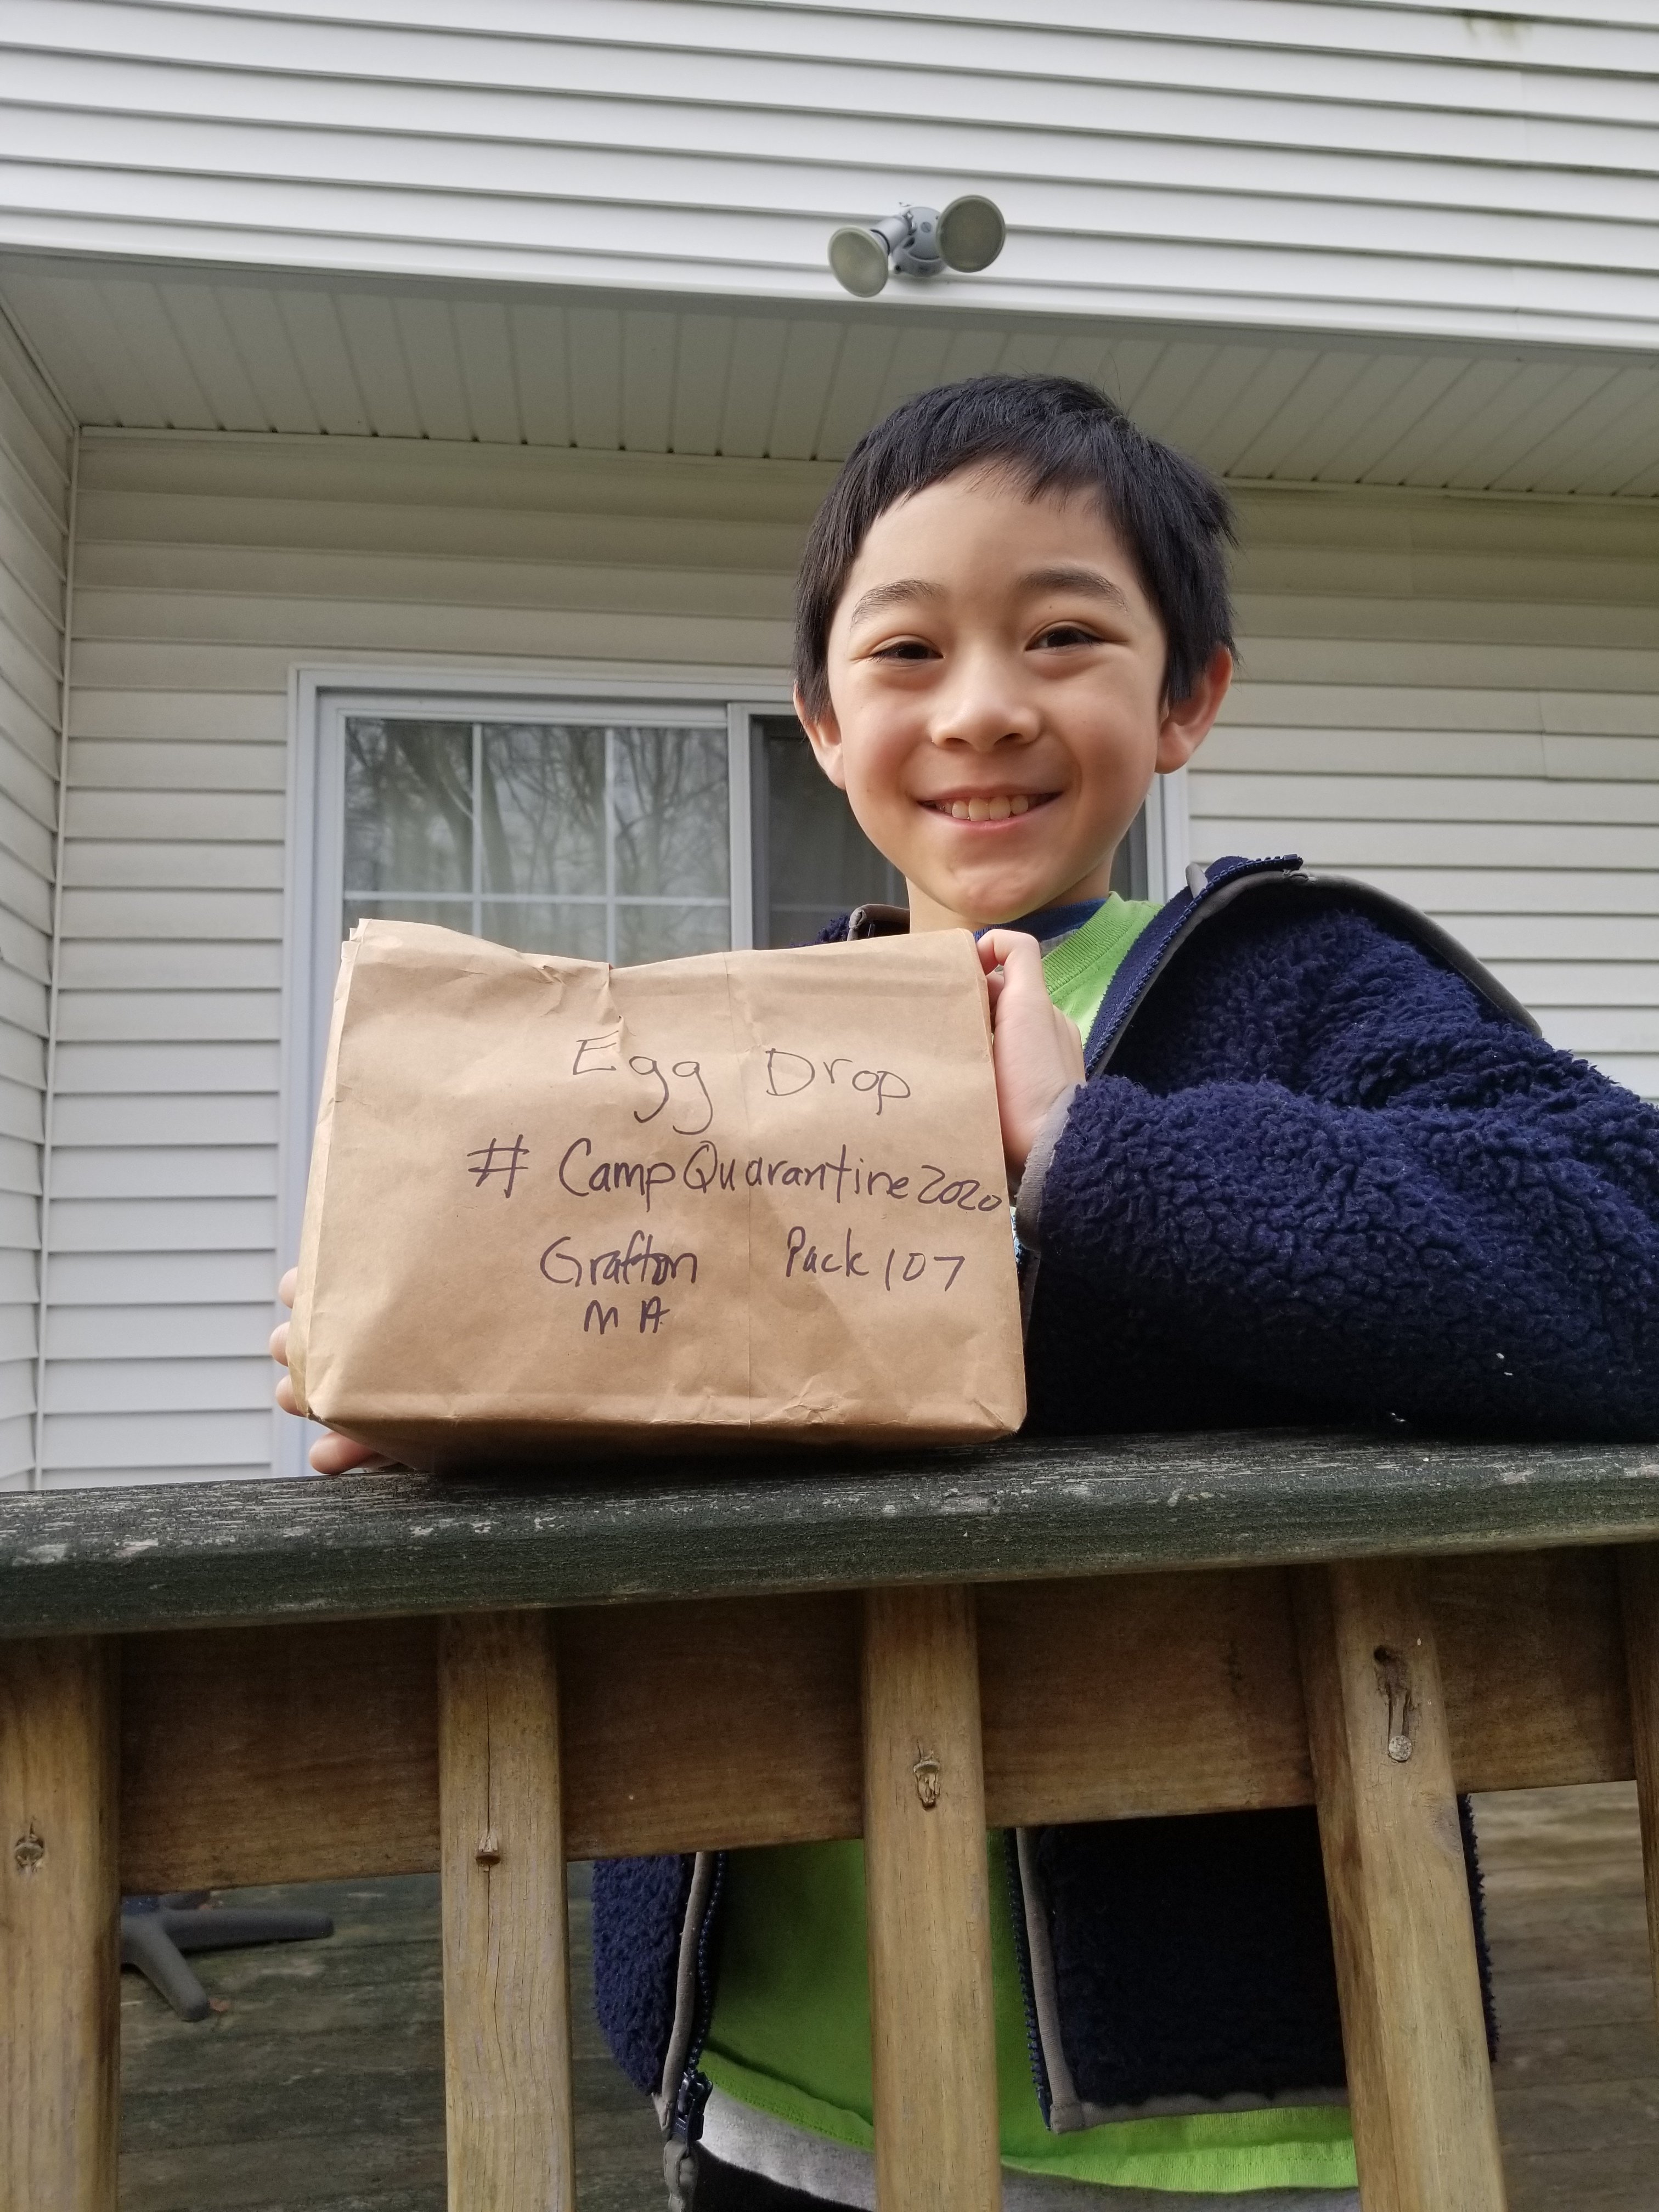 Egg Drop
# CampQuarantine2020
Grafton Pack 107
MA